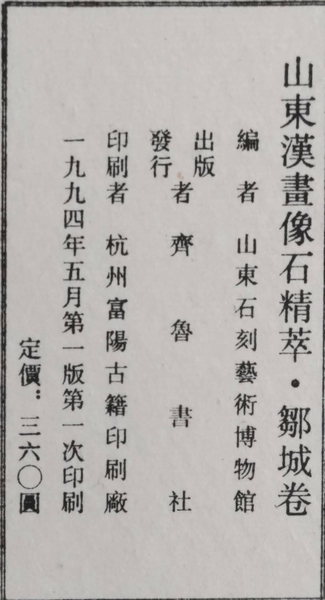 山東漢畫像石精萃·鄒城卷
編者 山東石刻藝術博物館
出版
發行
者 齊魯書社
印刷者 杭州富陽古籍印刷廠
一九九四年五月第一版第一次印刷
定價：三六〇圓